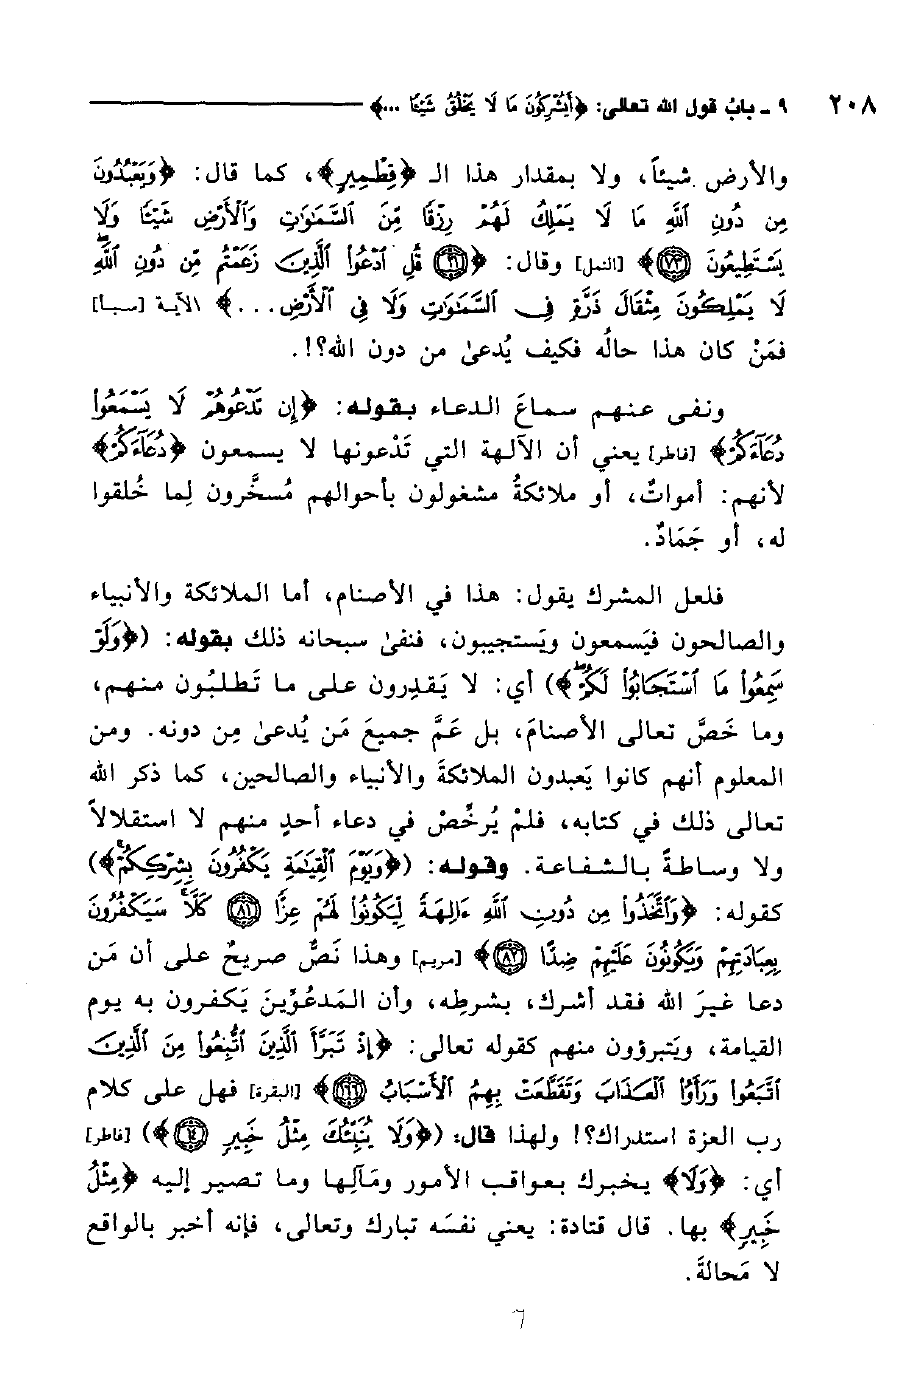 ٢٠٨ ٩ ـ بابُ قول الله تعالى: ﴿أَيُشْرِكُونَ مَا لَا يَخْلُقُ شَيْئًا ...﴾
والأرض شيئاً، ولا بمقدار هذا الـ ﴿قِطْمِيرٍ﴾، كما قال: ﴿وَيَعْبُدُونَ
مِن دُونِ ٱللَّهِ مَا لَا يَمْلِكُ لَهُمْ رِزْقًا مِّنَ ٱلسَّمَٰوَٰتِ وَٱلْأَرْضِ شَيْئًا وَلَا
يَسْتَطِيعُونَ ﴿٧٣﴾﴾ [النحل] وقال: ﴿﴿٢١﴾ قُلِ ٱدْعُوا۟ ٱلَّذِينَ زَعَمْتُم مِّن دُونِ ٱللَّهِۖ
لَا يَمْلِكُونَ مِثْقَالَ ذَرَّةٍ فِى ٱلسَّمَٰوَٰتِ وَلَا فِى ٱلْأَرْضِ...﴾ الآية [سبأ]
فمَنْ كان هذا حالُه فكيف يُدعىٰ من دون الله؟!.
ونفى عنهم سماعَ الدعاء بقوله: ﴿إِن تَدْعُوهُمْ لَا يَسْمَعُوا۟
دُعَآءَكُمْ﴾ [فاطر] يعني أن الآلهة التي تَدْعونها لا يسمعون ﴿دُعَآءَكُمْ﴾
لأنهم: أمواتٌ، أو ملائكةُ مشغولون بأحوالهم مُسخَّرون لِما خُلقوا
له، أو جَمَادٌ.
فلعل المشرك يقول: هذا في الأصنام، أما الملائكة والأنبياء
والصالحون فيَسمعون ويَستجيبون، فنفىٰ سبحانه ذلك بقوله: (﴿وَلَوْ
سَمِعُوا۟ مَا ٱسْتَجَابُوا۟ لَكُمْۖ﴾) أي: لا يَقدِرون على ما تَطلبُون منهم،
وما خَصَّ تعالى الأصنامَ، بل عَمَّ جميعَ مَن يُدعىٰ مِن دونه. ومن
المعلوم أنهم كانوا يَعبدون الملائكةَ والأنبياء والصالحين، كما ذكر الله
تعالى ذلك في كتابه، فلمْ يُرخِّصْ في دعاء أحدٍ منهم لا استقلالاً
ولا وساطةً بالشفاعة. وقوله: (﴿وَيَوْمَ ٱلْقِيَٰمَةِ يَكْفُرُونَ بِشِرْكِكُمْۚ﴾)
كقوله: ﴿وَٱتَّخَذُوا۟ مِن دُونِ ٱللَّهِ ءَالِهَةً لِّيَكُونُوا۟ لَهُمْ عِزًّا ﴿٨١﴾ كَلَّاۚ سَيَكْفُرُونَ
بِعِبَادَتِهِمْ وَيَكُونُونَ عَلَيْهِمْ ضِدًّا ﴿٨٢﴾﴾ [مريم] وهذا نَصٌّ صريحٌ على أن مَن
دعا غيرَ الله فقد أشرك، بشرطِه، وأن المَدعُوِّينَ يَكفرون به يوم
القيامة، ويَتبرؤون منهم كقوله تعالى: ﴿إِذْ تَبَرَّأَ ٱلَّذِينَ ٱتُّبِعُوا۟ مِنَ ٱلَّذِينَ
ٱتَّبَعُوا۟ وَرَأَوُا۟ ٱلْعَذَابَ وَتَقَطَّعَتْ بِهِمُ ٱلْأَسْبَابُ ﴿١٦٦﴾﴾ [البقرة] فهل على كلام
رب العزة استدراك؟! ولهذا قال: (﴿وَلَا يُنَبِّئُكَ مِثْلُ خَبِيرٍ ﴿١٤﴾﴾) [فاطر]
أي: ﴿وَلَا﴾ يخبرك بعواقب الأمور ومَآلِها وما تصير إليه ﴿مِثْلُ
خَبِيرٍ﴾ بها. قال قتادة: يعني نفسَه تبارك وتعالى، فإنه أخبر بالواقع
لا مَحالةَ.
٦